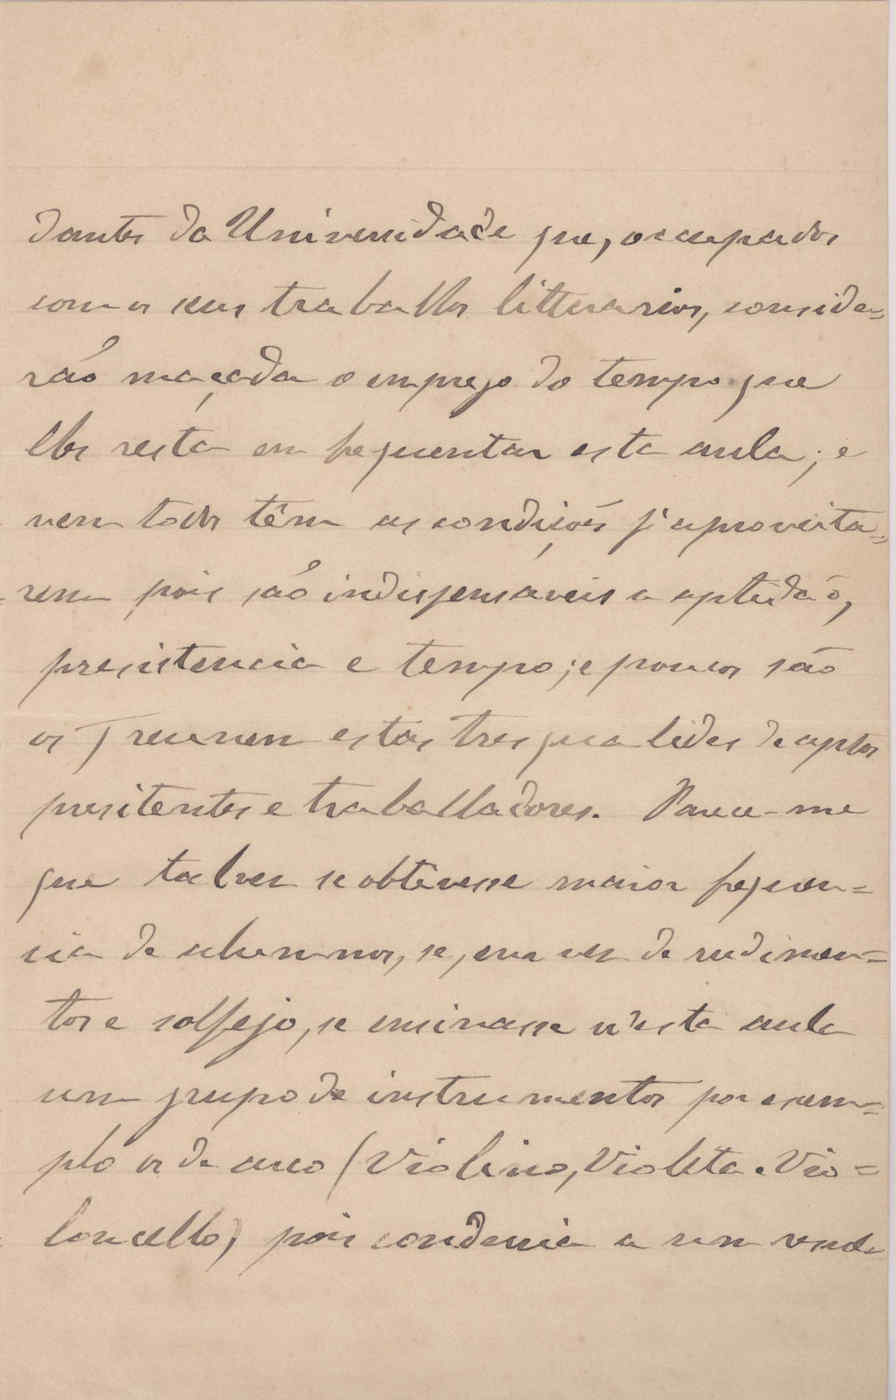 dantes da Universidade que, occupados
com os seus trabalhos litterarios, conside-
rão maçada o emprego do tempo que
lhes resta em frequentar esta aula; e
nem todos têm as condições p.ª aproveita-
rem pois são indispensáveis a aptidão,
presistencia e tempo; e poucos são
os q reunem estas tres qualides de aptos
presitentes e trabalhadores. Parece-me
que talvez se obtivesse maior frequen=
cia de alumnos, se, em vez de rudimen=
tos e solfejo, se ensinasse n'esta aula
um grupo de instrumentos por exem=
plo os de arco (Violino, Violeta e Vio=
loncello) pois conduzia a um